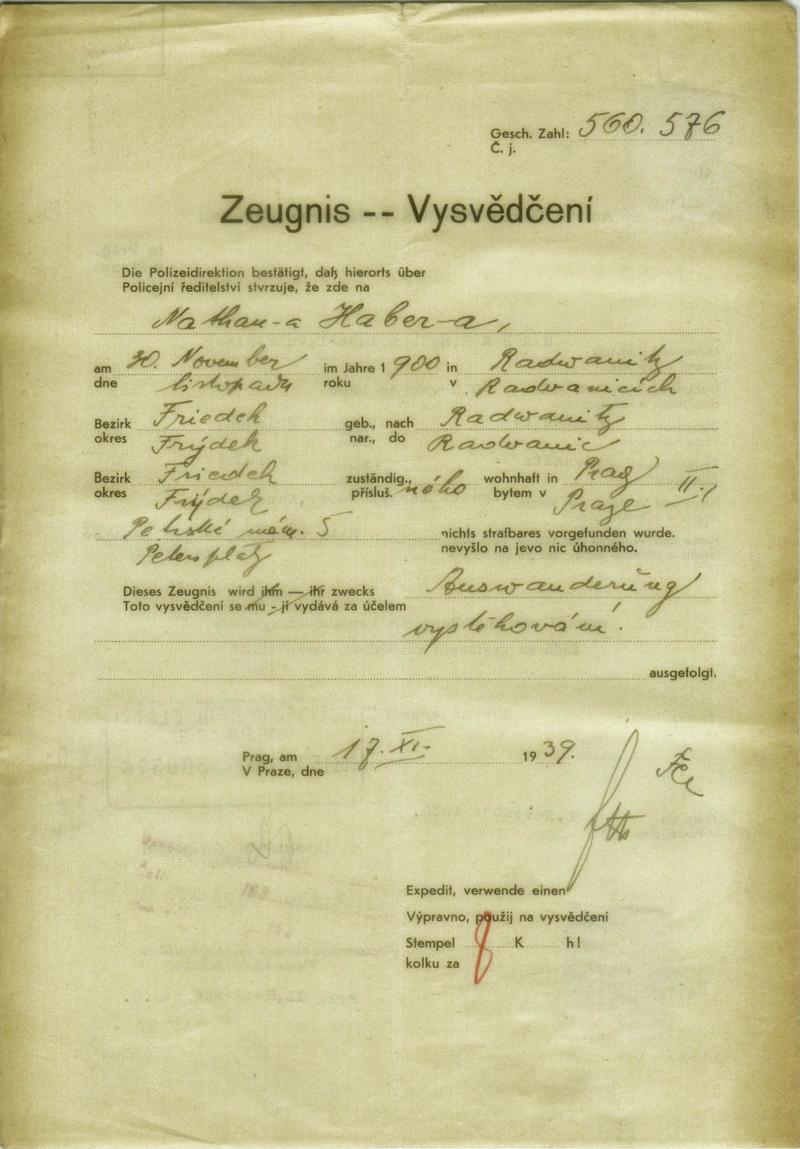 Gesch. Zahl: 560.576
Č. j.
Zeugnis -- Vysvědčení
Die Polizeidirektion bestätigt, daß hierorts über
Policejní ředitelství stvrzuje, že zde na
Nathan-a Haber-a,
am 30. November im Jahre 1900 in Radwanitz
dne listopadu roku v Radvanicích
Bezirk Friedek geb., nach Radwanitz
okres Frýdek nar., do Radvanic
Bezirk Friedek zuständig., wohnhaft in Prag II.
okres Frýdek přísluš. ného bytem v Praze
Petrské nám. 5 nichts strafbares vorgefunden wurde.
Petersplatz nevyšlo na jevo nic úhonného.
Dieses Zeugnis wird ihm — ihr zwecks Auswanderung
Toto vysvědčení se mu - jí vydává za účelem
vystěhování.
ausgefolgt.
Prag, am 17. XI. 1939.
V Praze, dne
Expedit, verwende einen
Výpravno, použij na vysvědčení
Stempel 8 K h!
kolku za